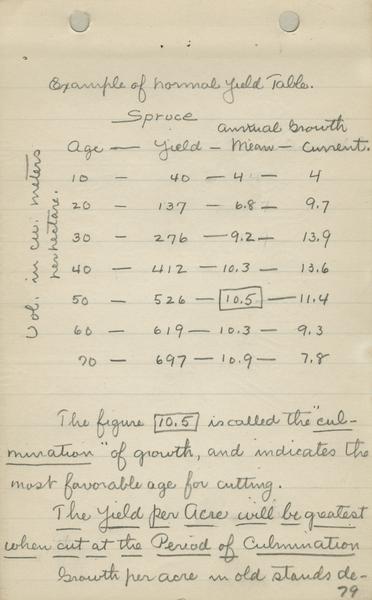 Example of normal Yield Table.
Spruce
Annual Growth
Age — Yield — Mean — Current.
10 — 40 — 4 — 4
20 — 137 — 6.8 — 9.7
30 — 276 — 9.2 — 13.9
40 — 412 — 10.3 — 13.6
50 — 526 — 10.5 — 11.4
60 — 619 — 10.3 — 9.3
70 — 697 — 10.9 — 7.8
Vol. in cu. meters
per hectare.
The figure 10.5 is called the "cul-
mination" of growth, and indicates the
most favorable age for cutting.
The Yield per Acre will be greatest
when cut at the Period of Culmination
Growth per acre in old stands de-
79